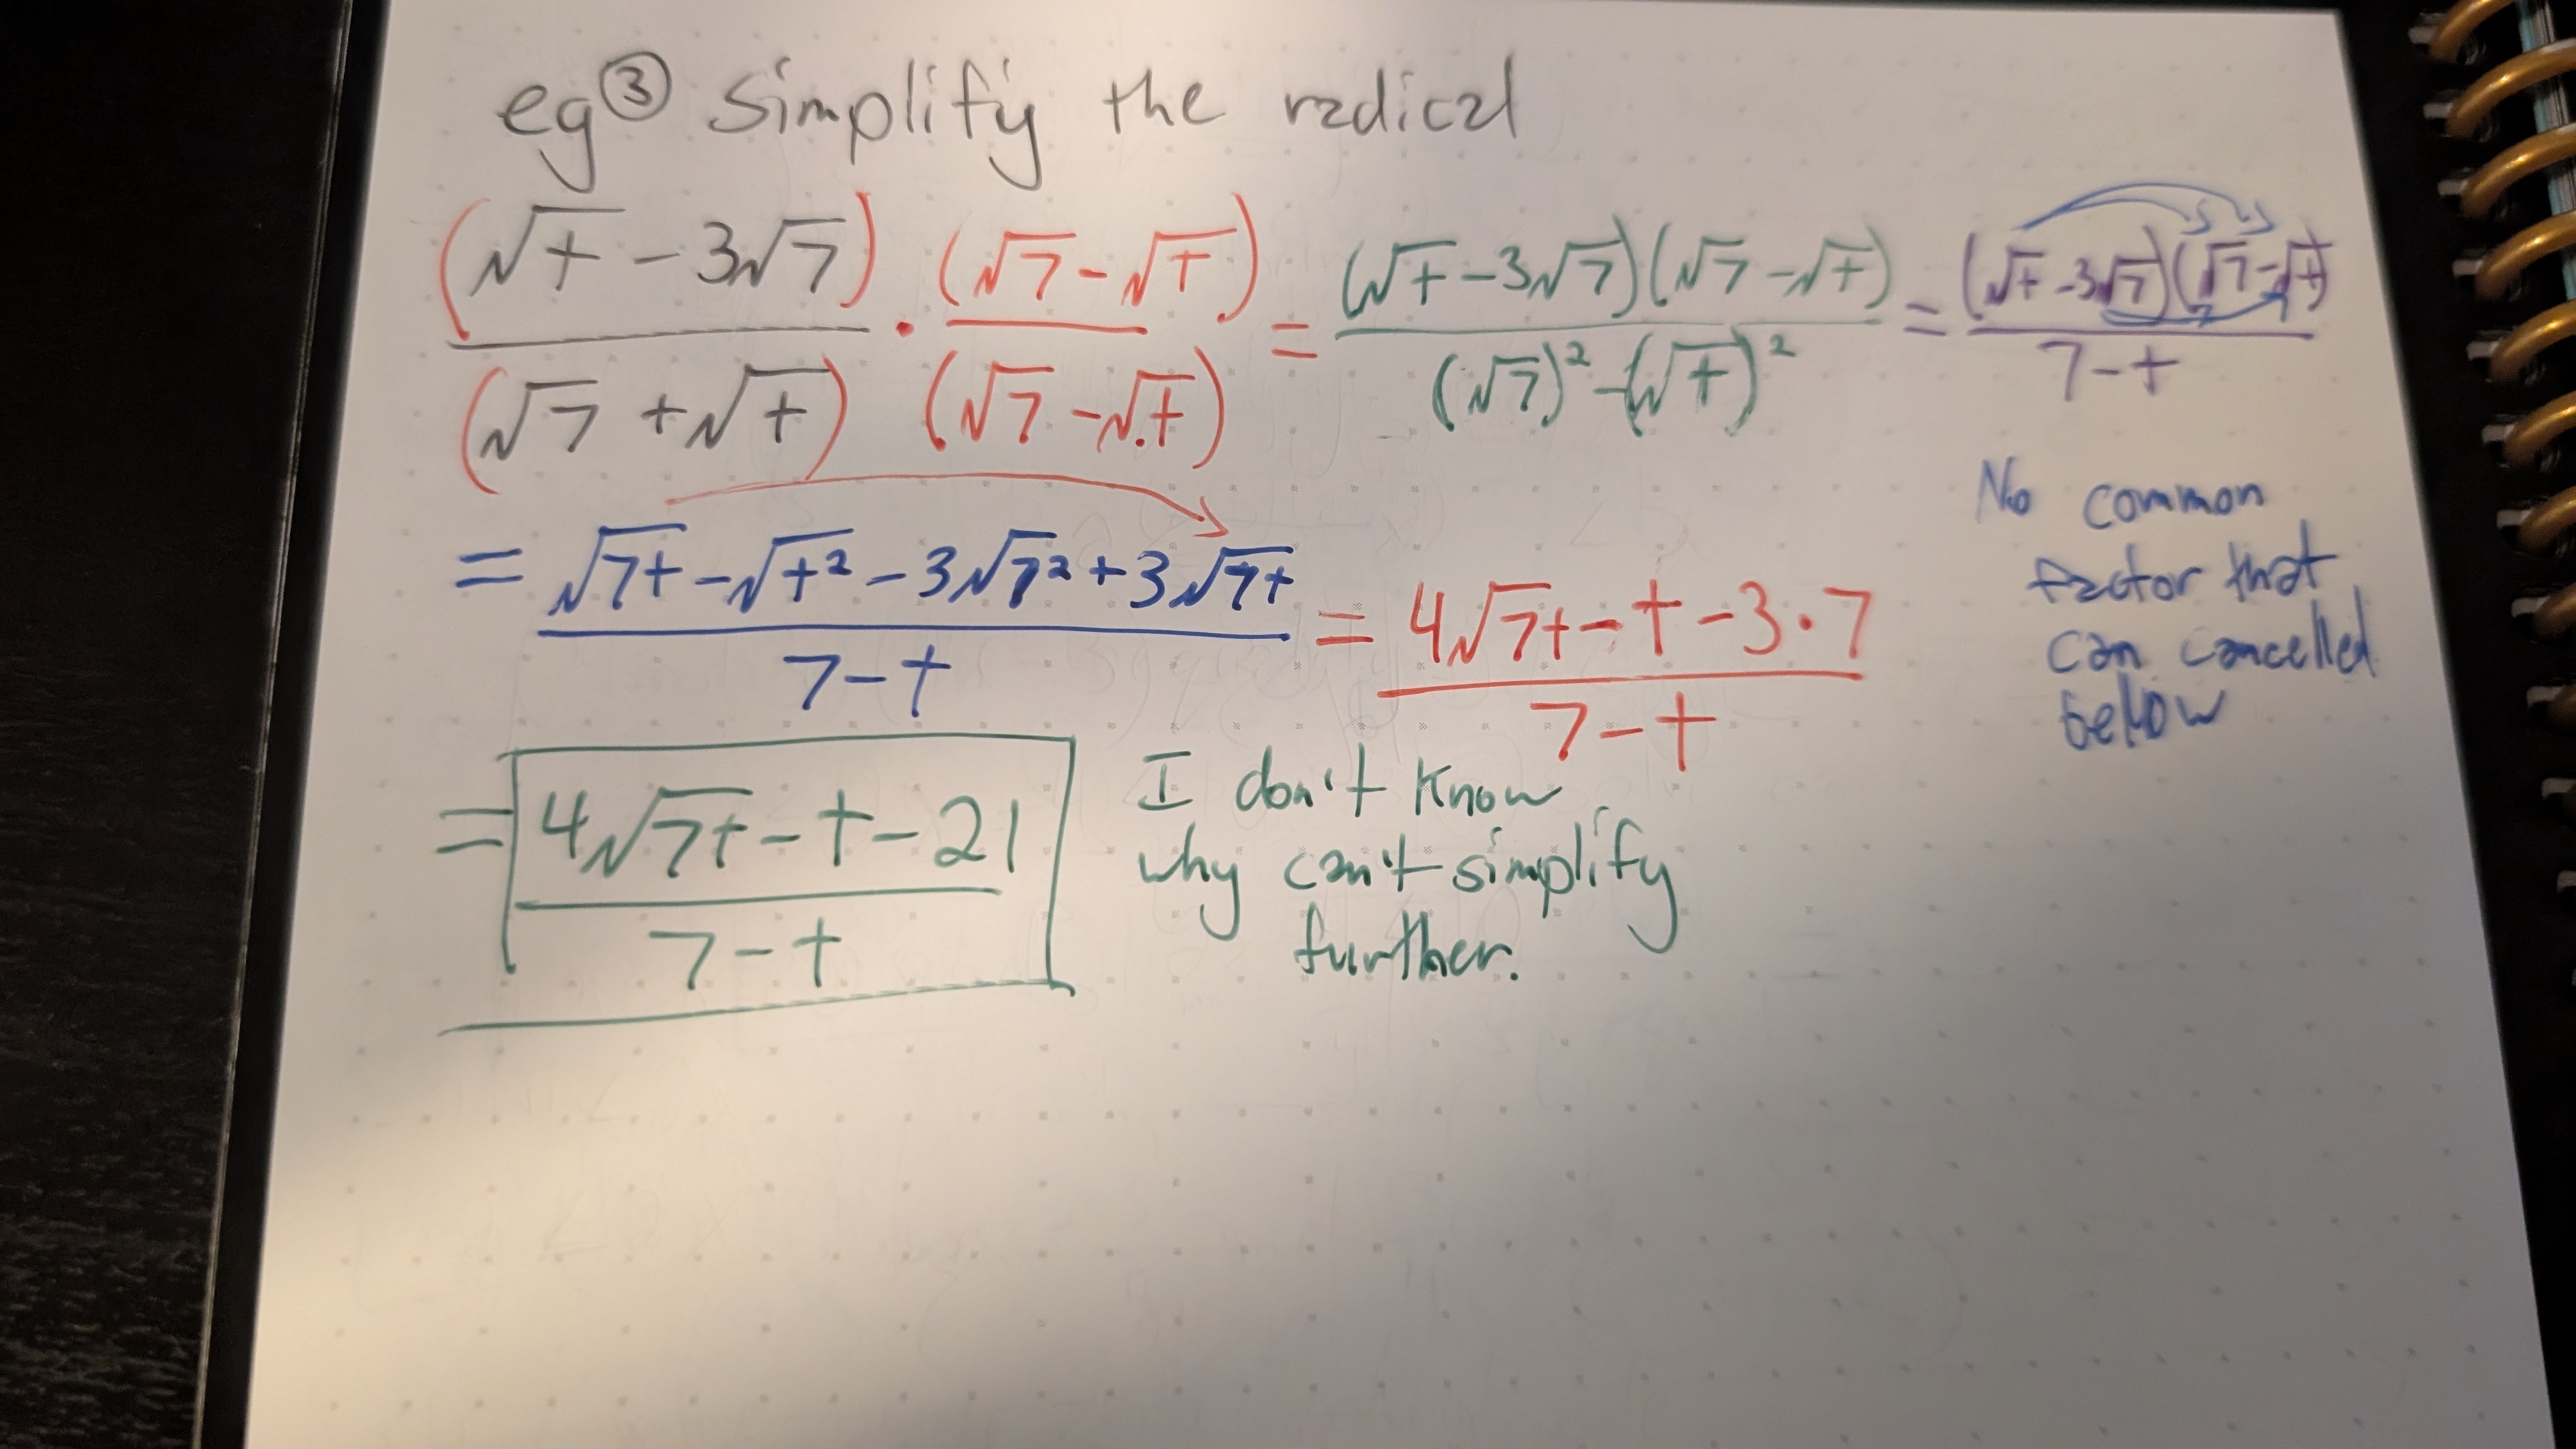 eg ③ simplify the radical
(√t - 3√7) / (√7 + √t) · (√7 - √t) / (√7 - √t) = (√t - 3√7)(√7 - √t) / (√7)² - (√t)² = (√t - 3√7)(√7 - √t) / 7 - t
No common
factor that
can cancelled
below
= √7t - √t² - 3√7² + 3√7t / 7 - t = 4√7t - t - 3·7 / 7 - t
= 4√7t - t - 21 / 7 - t
I don't know
why can't simplify
further.